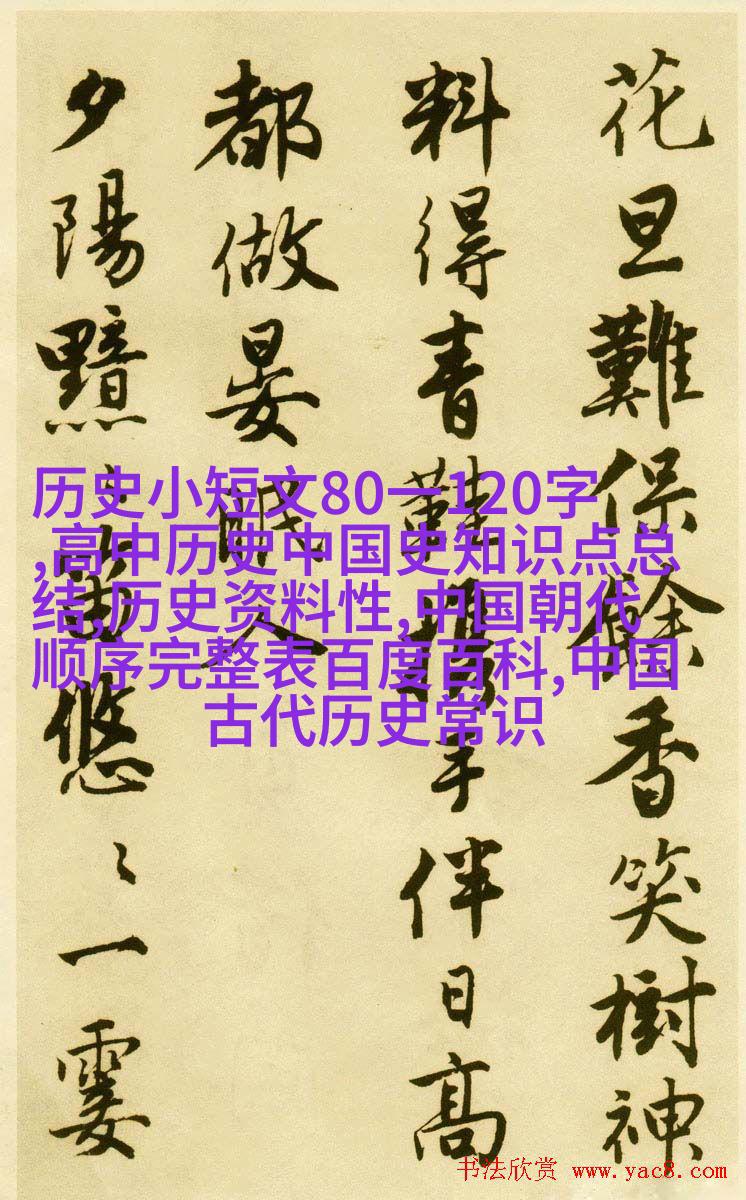 花旦難保餘香笑樹神
料得青鞋攜手伴日高
都做晏眠人
夕陽黯〻笛悠〻一霎
历史小短文80一120字
,高中历史中国史知识点总
结,历史资料性,中国朝代
顺序完整表百度百科,中国
古代历史常识
书法欣赏 www.yac8.com